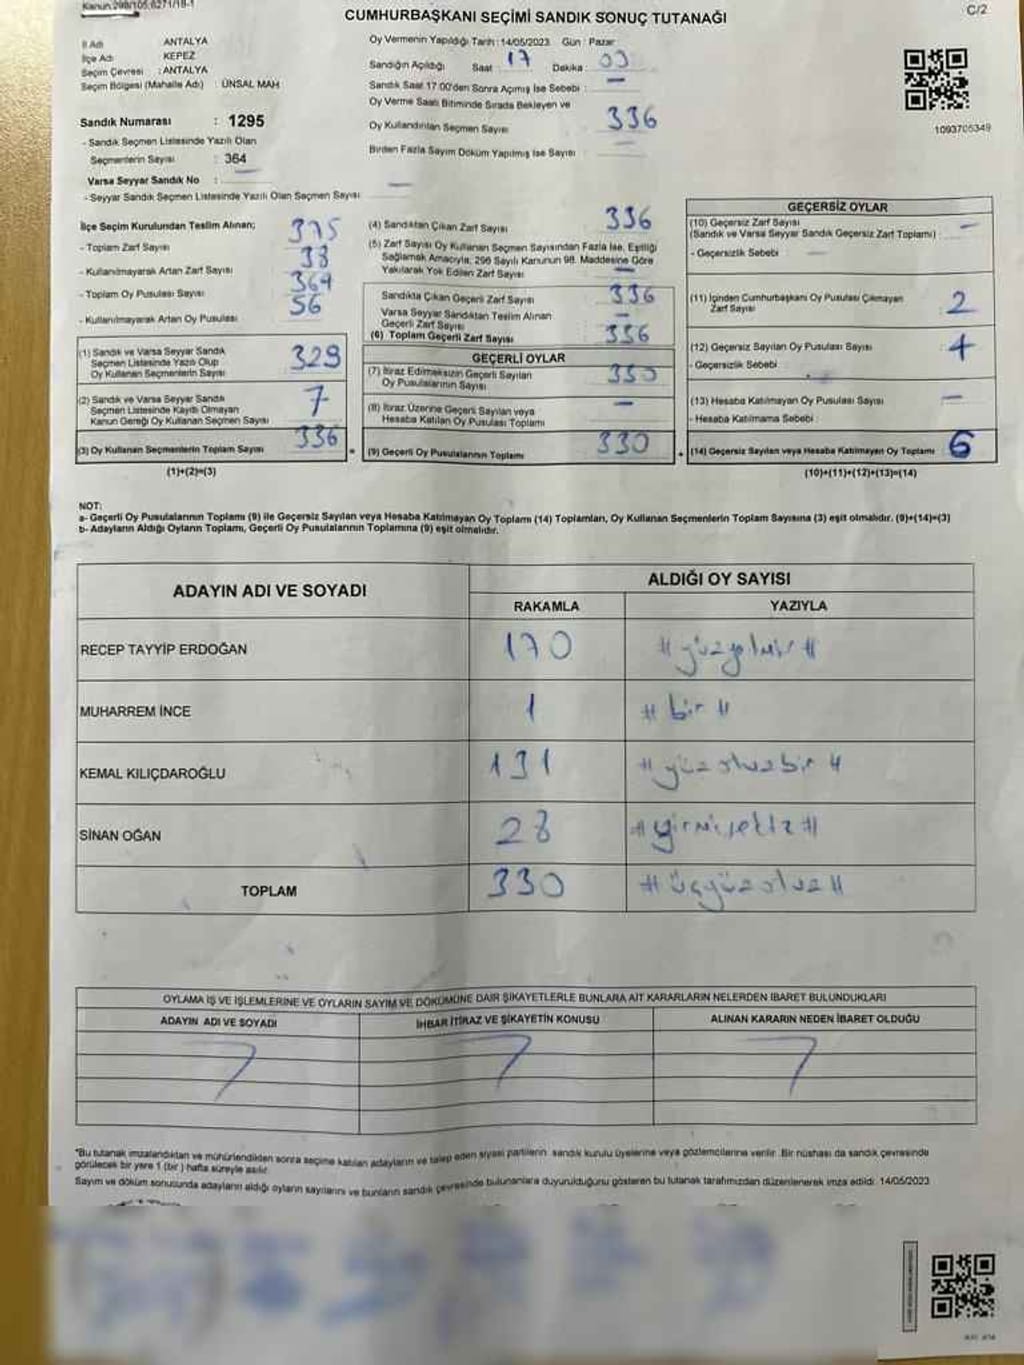 Kanun:298/105,6271/18-1
CUMHURBAŞKANI SEÇİMİ SANDIK SONUÇ TUTANAĞI
C/2
İl Adı ANTALYA
İlçe Adı KEPEZ
Seçim Çevresi : ANTALYA
Seçim Bölgesi (Mahalle Adı) : ÜNSAL MAH
Oy Vermenin Yapıldığı Tarih : 14/05/2023 Gün : Pazar
Sandığın Açıldığı Saat : 17 Dakika :
Sandık Saat 17:00'den Sonra Açımış İse Sebebi : –
Oy Verme Saati Bitiminde Sırada Bekleyen ve
Oy Kullandırılan Seçmen Sayısı 336
Birden Fazla Sayım Döküm Yapılmış İse Sayısı : –
1093705349
Sandık Numarası : 1295
- Sandık Seçmen Listesinde Yazılı Olan
Seçmenlerin Sayısı : 364
Varsa Seyyar Sandık No : –
- Seyyar Sandık Seçmen Listesinde Yazılı Olan Seçmen Sayısı –
İlçe Seçim Kurulundan Teslim Alınan;
- Toplam Zarf Sayısı 375
- Kullanılmayarak Artan Zarf Sayısı 38
- Toplam Oy Pusulası Sayısı 364
- Kullanılmayarak Artan Oy Pusulası 56
(1) Sandık ve Varsa Seyyar Sandık
Seçmen Listesinde Yazılı Olup
Oy Kullanan Seçmenlerin Sayısı 329
(2) Sandık ve Varsa Seyyar Sandık
Seçmen Listesinde Kayıtlı Olmayan
Kanun Gereği Oy Kullanan Seçmen Sayısı 7
(3) Oy Kullanan Seçmenlerin Toplam Sayısı 336
(1)+(2)=(3)
(4) Sandıktan Çıkan Zarf Sayısı 336
(5) Zarf Sayısı Oy Kullanan Seçmen Sayısından Fazla İse, Eşitliği
Sağlamak Amacıyla, 298 Sayılı Kanunun 98. Maddesine Göre
Yakılarak Yok Edilen Zarf Sayısı –
Sandıkta Çıkan Geçerli Zarf Sayısı 336
Varsa Seyyar Sandıktan Teslim Alınan
Geçerli Zarf Sayısı –
(6) Toplam Geçerli Zarf Sayısı 336
GEÇERLİ OYLAR
(7) İtiraz Edilmeksizin Geçerli Sayılan
Oy Pusulalarının Sayısı 330
(8) İtiraz Üzerine Geçerli Sayılan veya
Hesaba Katılan Oy Pusulası Toplamı –
= (9) Geçerli Oy Pusulalarının Toplamı 330
GEÇERSİZ OYLAR
(10) Geçersiz Zarf Sayısı
(Sandık ve Varsa Seyyar Sandık Geçersiz Zarf Toplamı) : –
- Geçersizlik Sebebi : –
(11) İçinden Cumhurbaşkanı Oy Pusulası Çıkmayan
Zarf Sayısı : 2
(12) Geçersiz Sayılan Oy Pusulası Sayısı : 4
- Geçersizlik Sebebi :
(13) Hesaba Katılmayan Oy Pusulası Sayısı : –
- Hesaba Katılmama Sebebi :
+ (14) Geçersiz Sayılan veya Hesaba Katılmayan Oy Toplamı : 6
(10)+(11)+(12)+(13)=(14)
NOT:
a- Geçerli Oy Pusulalarının Toplamı (9) ile Geçersiz Sayılan veya Hesaba Katılmayan Oy Toplamı (14) Toplamları, Oy Kullanan Seçmenlerin Toplam Sayısına (3) eşit olmalıdır. (9)+(14)=(3)
b- Adayların Aldığı Oyların Toplamı, Geçerli Oy Pusulalarının Toplamına (9) eşit olmalıdır.
ADAYIN ADI VE SOYADI ALDIĞI OY SAYISI
RAKAMLA YAZIYLA
RECEP TAYYİP ERDOĞAN 170 # yüzyetmiş #
MUHARREM İNCE 1 # bir #
KEMAL KILIÇDAROĞLU 131 # yüzotuzbir #
SİNAN OĞAN 28 # yirmisekiz #
TOPLAM 330 # üçyüzotuz #
OYLAMA İŞ VE İŞLEMLERİNE VE OYLARIN SAYIM VE DÖKÜMÜNE DAİR ŞİKAYETLERLE BUNLARA AİT KARARLARIN NELERDEN İBARET BULUNDUKLARI
ADAYIN ADI VE SOYADI İHBAR İTİRAZ VE ŞİKAYETİN KONUSU ALINAN KARARIN NEDEN İBARET OLDUĞU
*Bu tutanak imzalandıktan ve mühürlendikten sonra seçime katılan adayların ve talep eden siyasi partilerin sandık kurulu üyelerine veya gözlemcilerine verilir. Bir nüshası da sandık çevresinde
görülecek bir yere 1 (bir) hafta süreyle asılır.
Sayım ve döküm sonusunda adayların aldığı oyların sayılarını ve bunların sandık çevresinde bulunanlara duyurulduğunu gösteren bu tutanak tarafımızdan düzenlenerek imza edildi. 14/05/2023